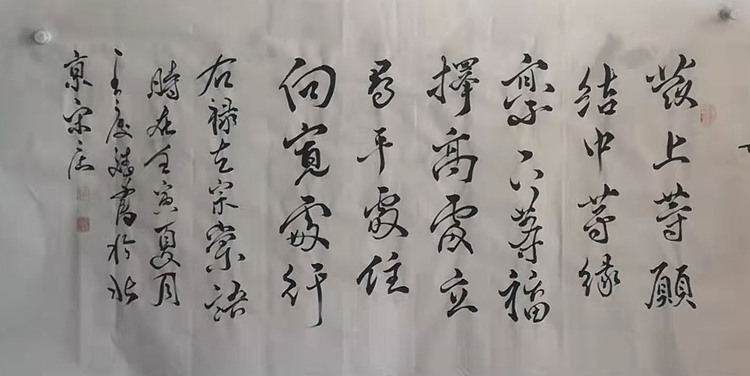 發上等願
結中等緣
享下等福
擇高處立
尋平處住
向寬處行
右錄左宗棠語
時在壬寅夏月
書於北
京宋莊